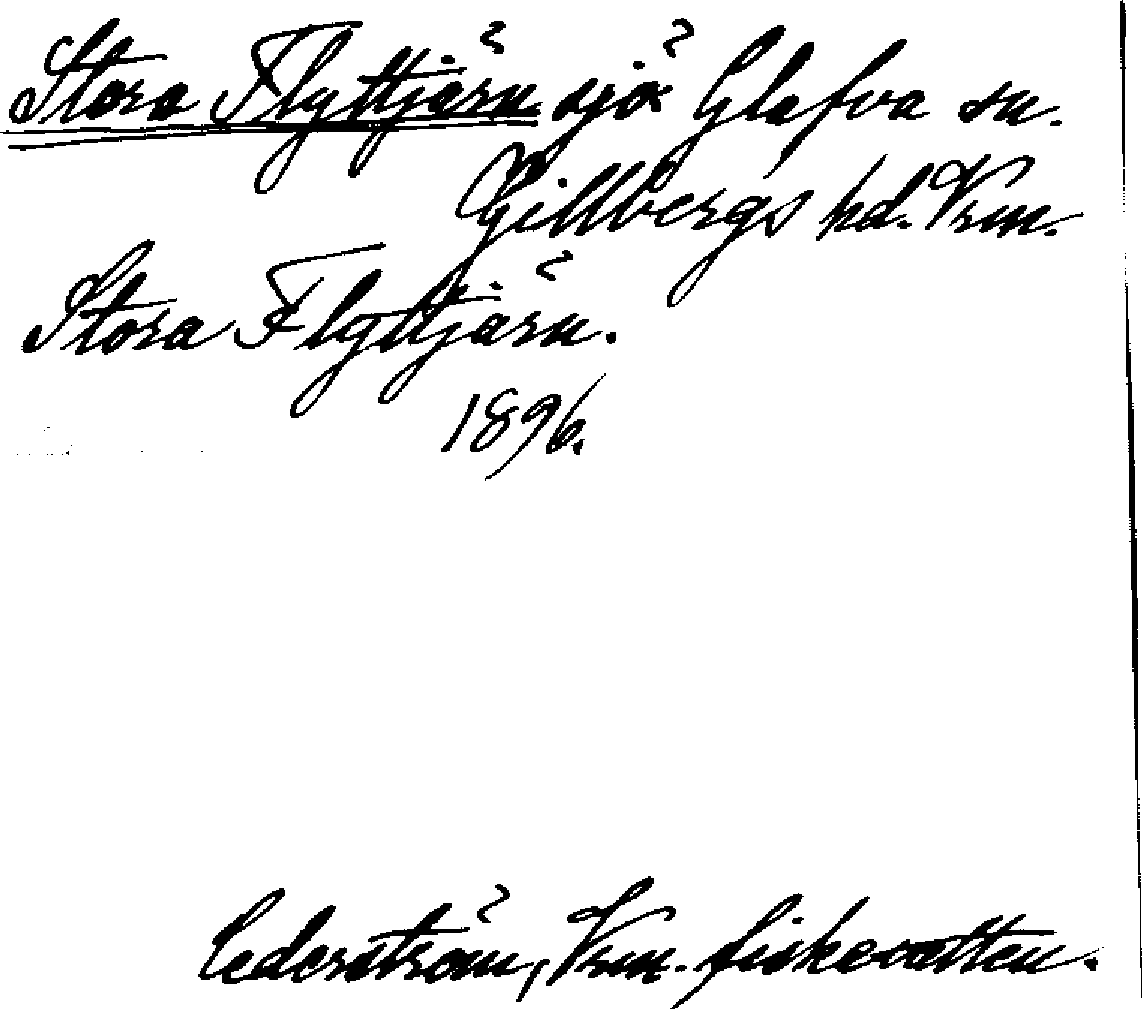 Stora Flyttjärn sjö Glafva sn.
Gillbergs hd. Vrm.
Stora Flyttjärn.
1896.
Cederström, Vrm. fiskevatten.